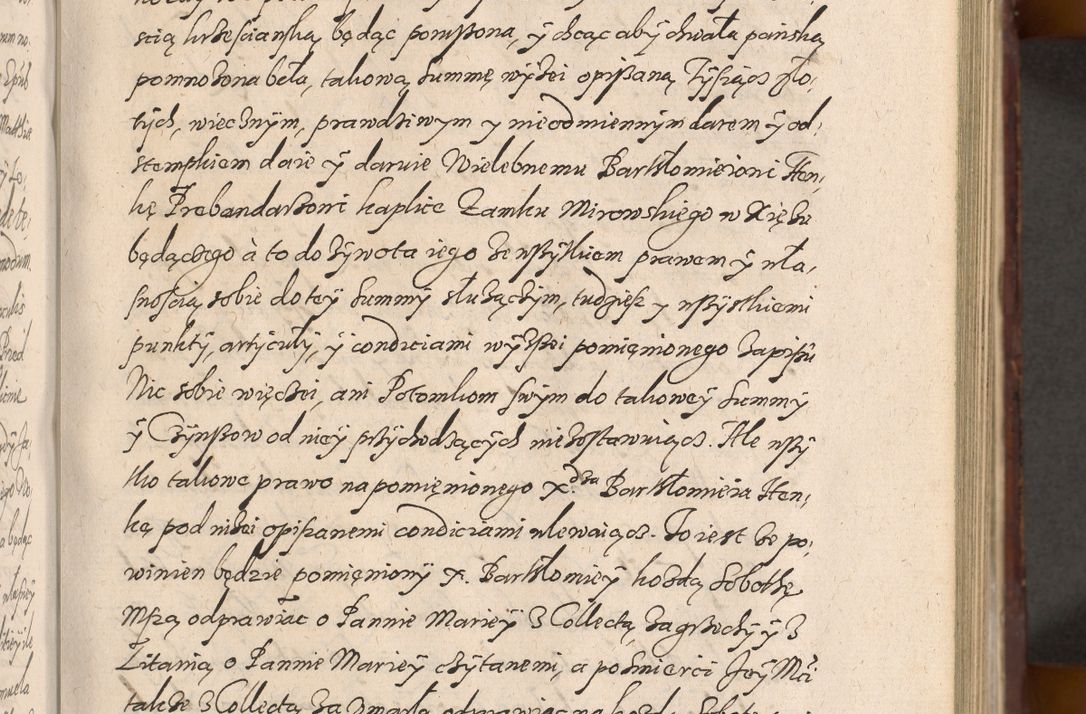 scią krzescianską będąc poruszona, ÿ chcąc abÿ chwała panską
pomnożona beła, takową summę wyżei opisaną Tÿsiącz zło,
tÿch, wiecznÿm, prawdziwym y nieodmiennÿm darem ÿ od,
stempkiem daie ÿ daruie Wielebnemu Barthłomieiowi Hen,
kę Præbendarzowi kaplice Zamku Mirowskiego w Xięże
będącego à to do żÿwota iego ze wszÿtkiem prawem ÿ wła,
snością sobie do teÿ summÿ służącÿm, tudziesz y wszÿstkiemi
punktÿ, artÿcułÿ, ÿ condiciami wÿższei pomięnionego zapisu
Nic sobie więczei, ani Potomkom swÿm do takoweÿ summÿ
ÿ Czÿnszow od nieÿ przÿchodzącÿch niezostawuiącz. Ale wszÿ
tko takowe prawo na pomięnionego x.dza Barthłomieia Hen,
kę pod niżei opisanemi condiciami wlewaiącz. To iest że po,
winien będzie pomięnionÿ x. Barthłomieÿ kożdą sobothę
Mszą odprawiac o Pannie Marieÿ z Collectą za grzechÿ ÿ z
Litanią o Pannie Marieÿ czÿtanemi, a po śmierci Jeÿ Mći
także z Collectą za zmarłą odprawiac na kożdą